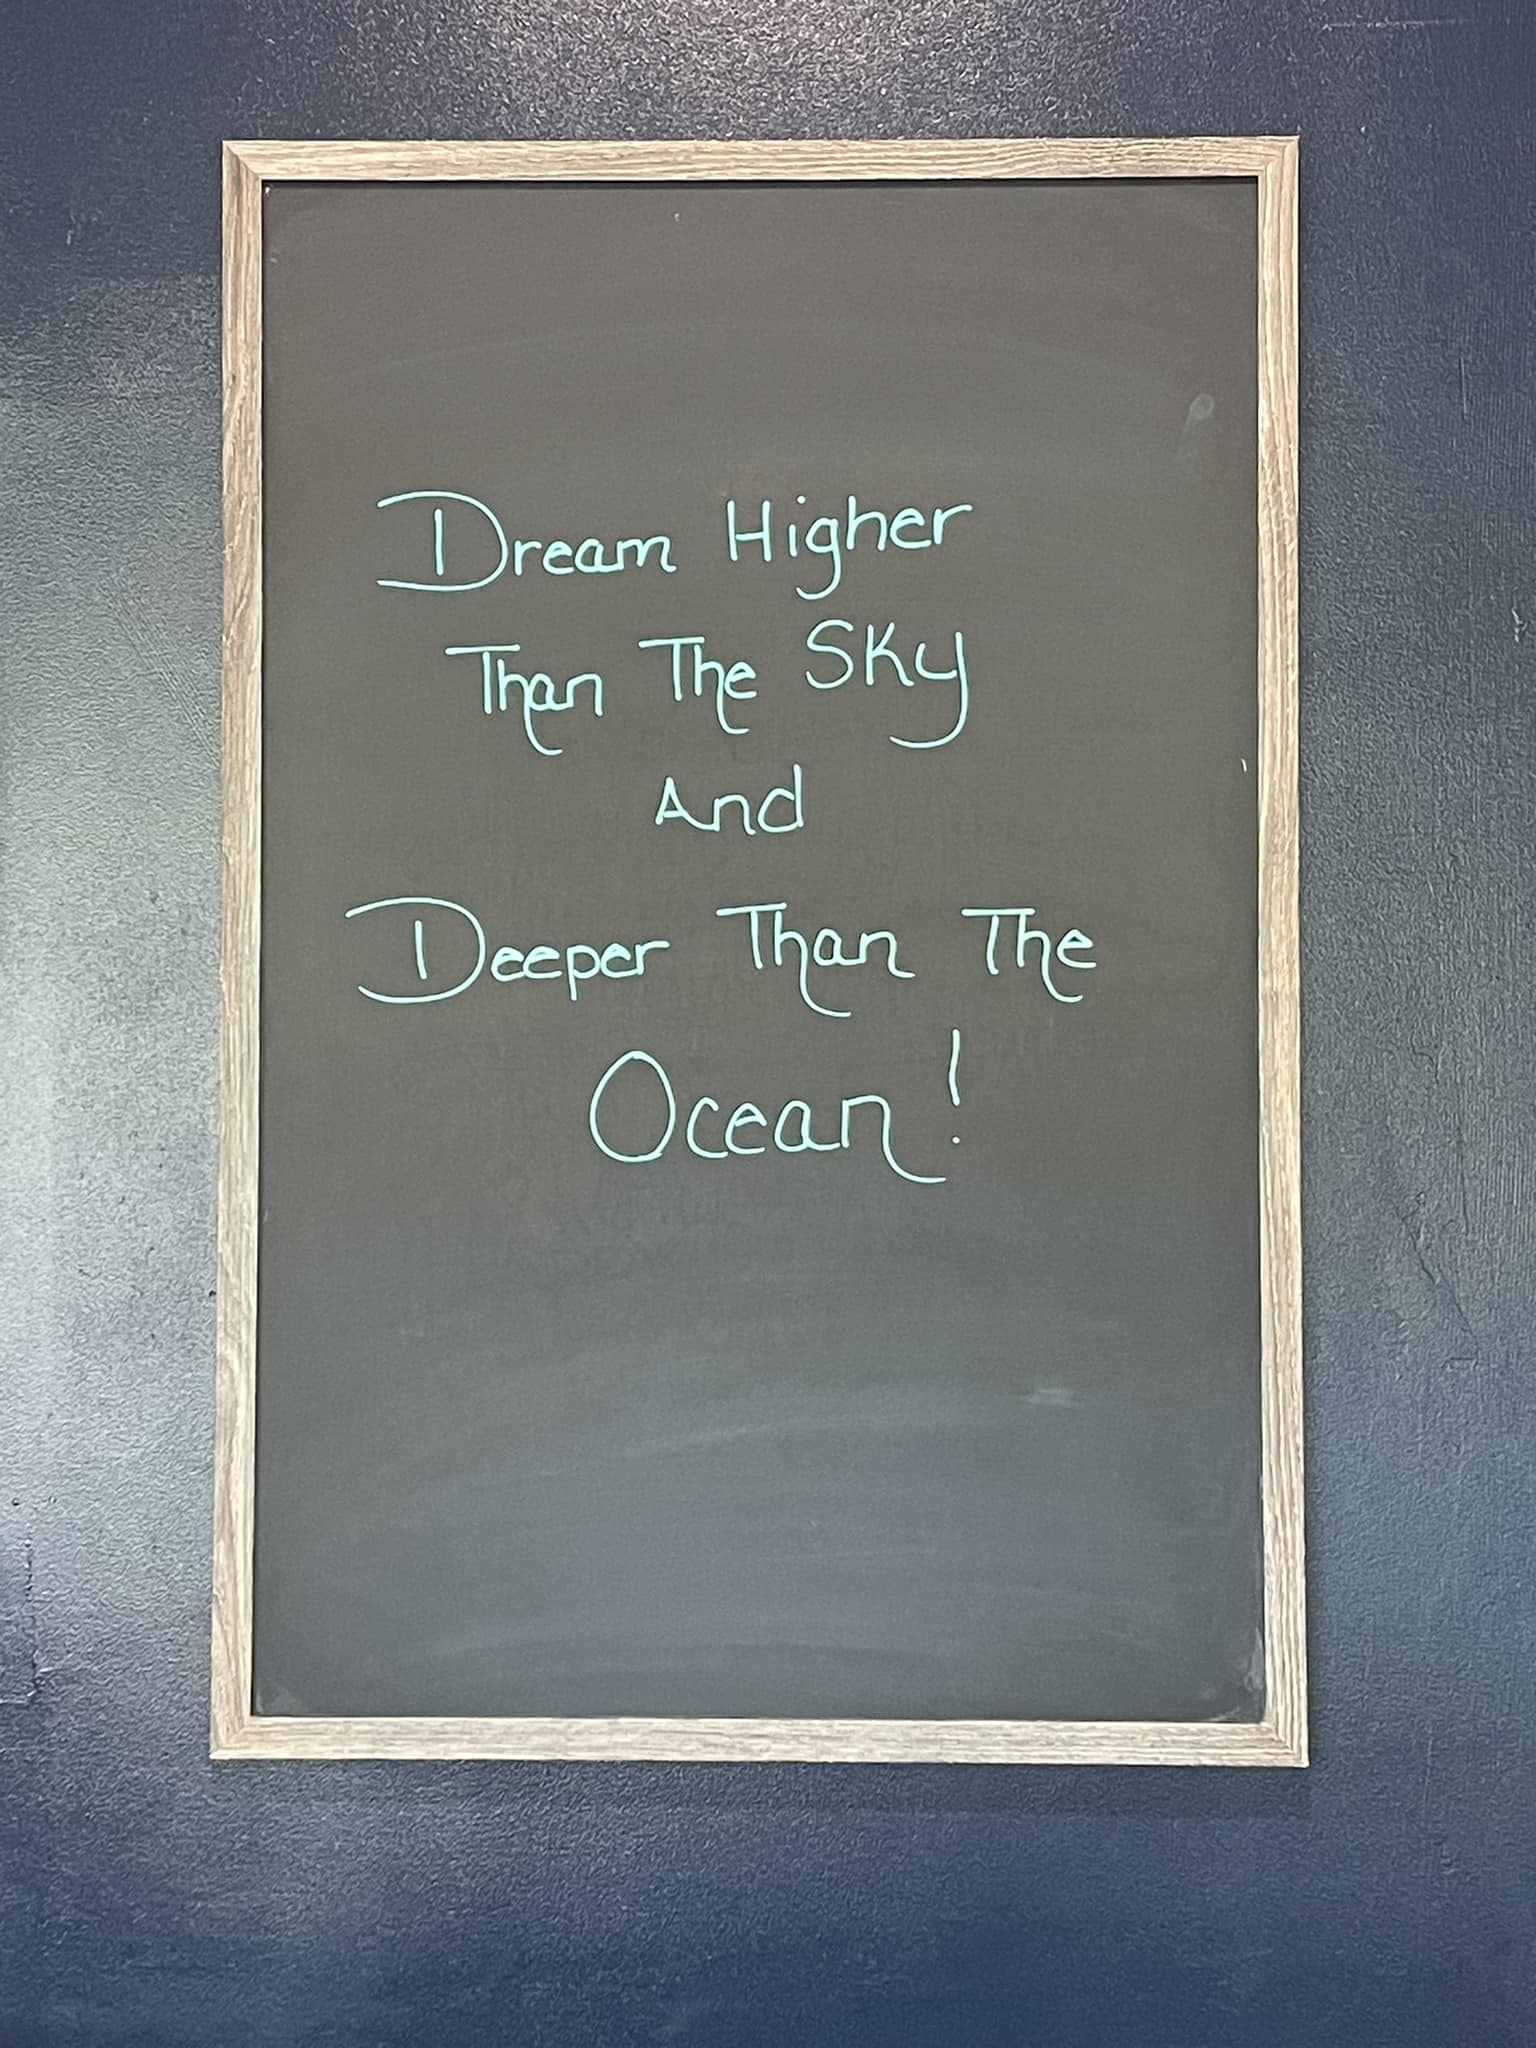 Dream Higher
Than The Sky
And
Deeper Than The
Ocean!